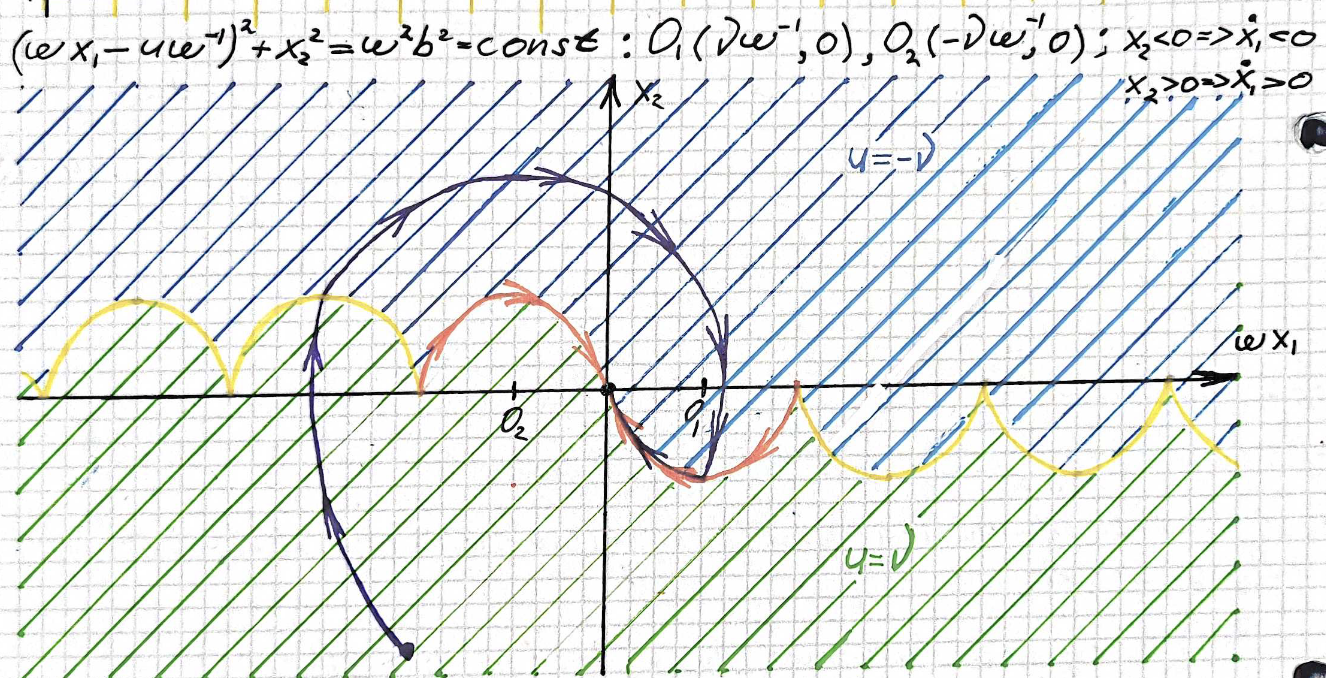 (ωx₁-uω⁻¹)²+x₂²=ω²b²=const : O₁(νω⁻¹,0), O₂(-νω⁻¹,0); x₂<0=>ẋ₁<0
x₂>0=>ẋ₁>0
x₂
u=-ν
ωx₁
O₂
O₁
u=ν